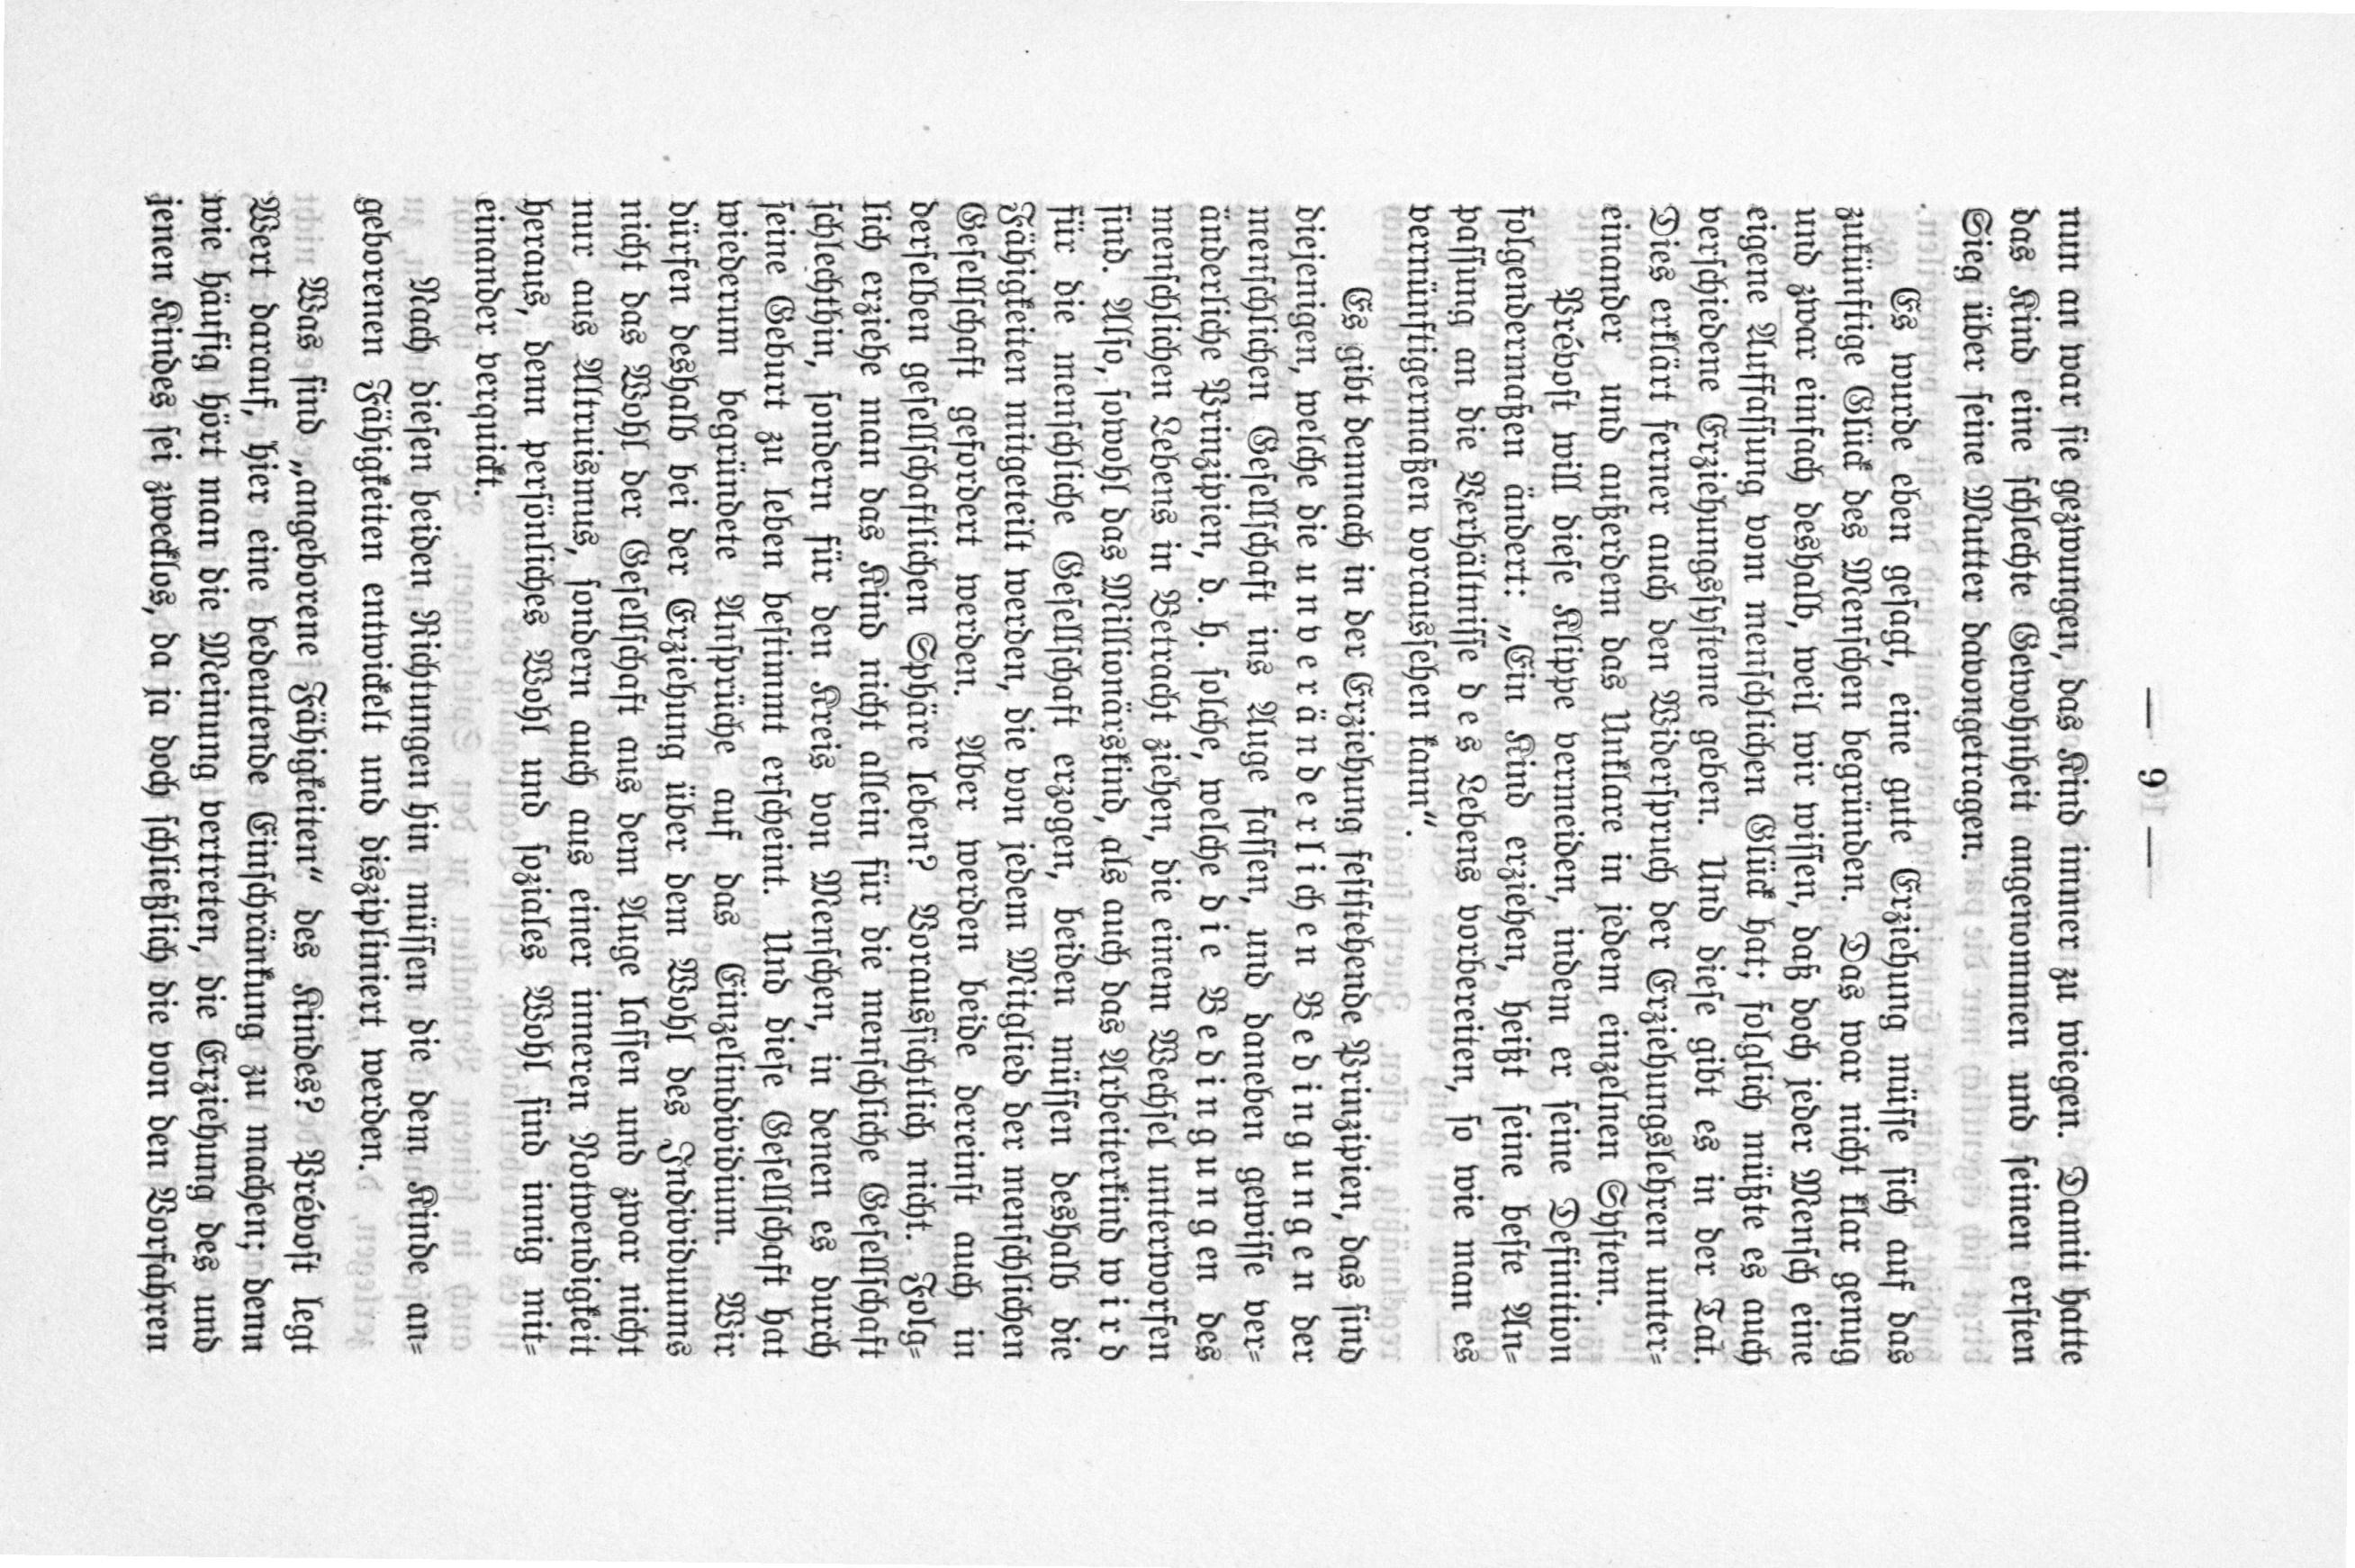 — 9 —
nun an war sie gezwungen, das Kind immer zu wiegen. Damit hatte
das Kind eine schlechte Gewohnheit angenommen und seinen ersten
Sieg über seine Mutter davongetragen.
Es wurde eben gesagt, eine gute Erziehung müsse sich auf das
zukünftige Glück des Menschen begründen. Das war nicht klar genug
und zwar einfach deshalb, weil wir wissen, daß doch jeder Mensch eine
eigene Auffassung vom menschlichen Glück hat; folglich müßte es auch
verschiedene Erziehungssysteme geben. Und diese gibt es in der Tat.
Dies erklärt ferner auch den Widerspruch der Erziehungslehren unter-
einander und außerdem das Unklare in jedem einzelnen System.
Prévost will diese Klippe vermeiden, indem er seine Definition
folgendermaßen ändert: „Ein Kind erziehen, heißt seine beste An-
passung an die Verhältnisse des Lebens vorbereiten, so wie man es
vernünftigermaßen voraussehen kann“.
Es gibt demnach in der Erziehung feststehende Prinzipien, das sind
diejenigen, welche die unveränderlichen Bedingungen der
menschlichen Gesellschaft ins Auge fassen, und daneben gewisse ver-
änderliche Prinzipien, d. h. solche, welche die Bedingungen des
menschlichen Lebens in Betracht ziehen, die einem Wechsel unterworfen
sind. Also, sowohl das Millionärskind, als auch das Arbeiterkind wird
für die menschliche Gesellschaft erzogen, beiden müssen deshalb die
Fähigkeiten mitgeteilt werden, die von jedem Mitglied der menschlichen
Gesellschaft gefordert werden. Aber werden beide dereinst auch in
derselben gesellschaftlichen Sphäre leben? Voraussichtlich nicht. Folg-
lich erziehe man das Kind nicht allein für die menschliche Gesellschaft
schlechthin, sondern für den Kreis von Menschen, in denen es durch
seine Geburt zu leben bestimmt erscheint. Und diese Gesellschaft hat
wiederum begründete Ansprüche auf das Einzelindividium. Wir
dürfen deshalb bei der Erziehung über dem Wohl des Individuums
nicht das Wohl der Gesellschaft aus dem Auge lassen und zwar nicht
nur aus Altruismus, sondern auch aus einer inneren Notwendigkeit
heraus, denn persönliches Wohl und soziales Wohl sind innig mit-
einander verquickt.
Nach diesen beiden Richtungen hin müssen die dem Kinde an-
geborenen Fähigkeiten entwickelt und diszipliniert werden.
Was sind „angeborene Fähigkeiten“ des Kindes? Prévost legt
Wert darauf, hier eine bedeutende Einschränkung zu machen; denn
wie häufig hört man die Meinung vertreten, die Erziehung des und
jenen Kindes sei zwecklos, da ja doch schließlich die von den Vorfahren